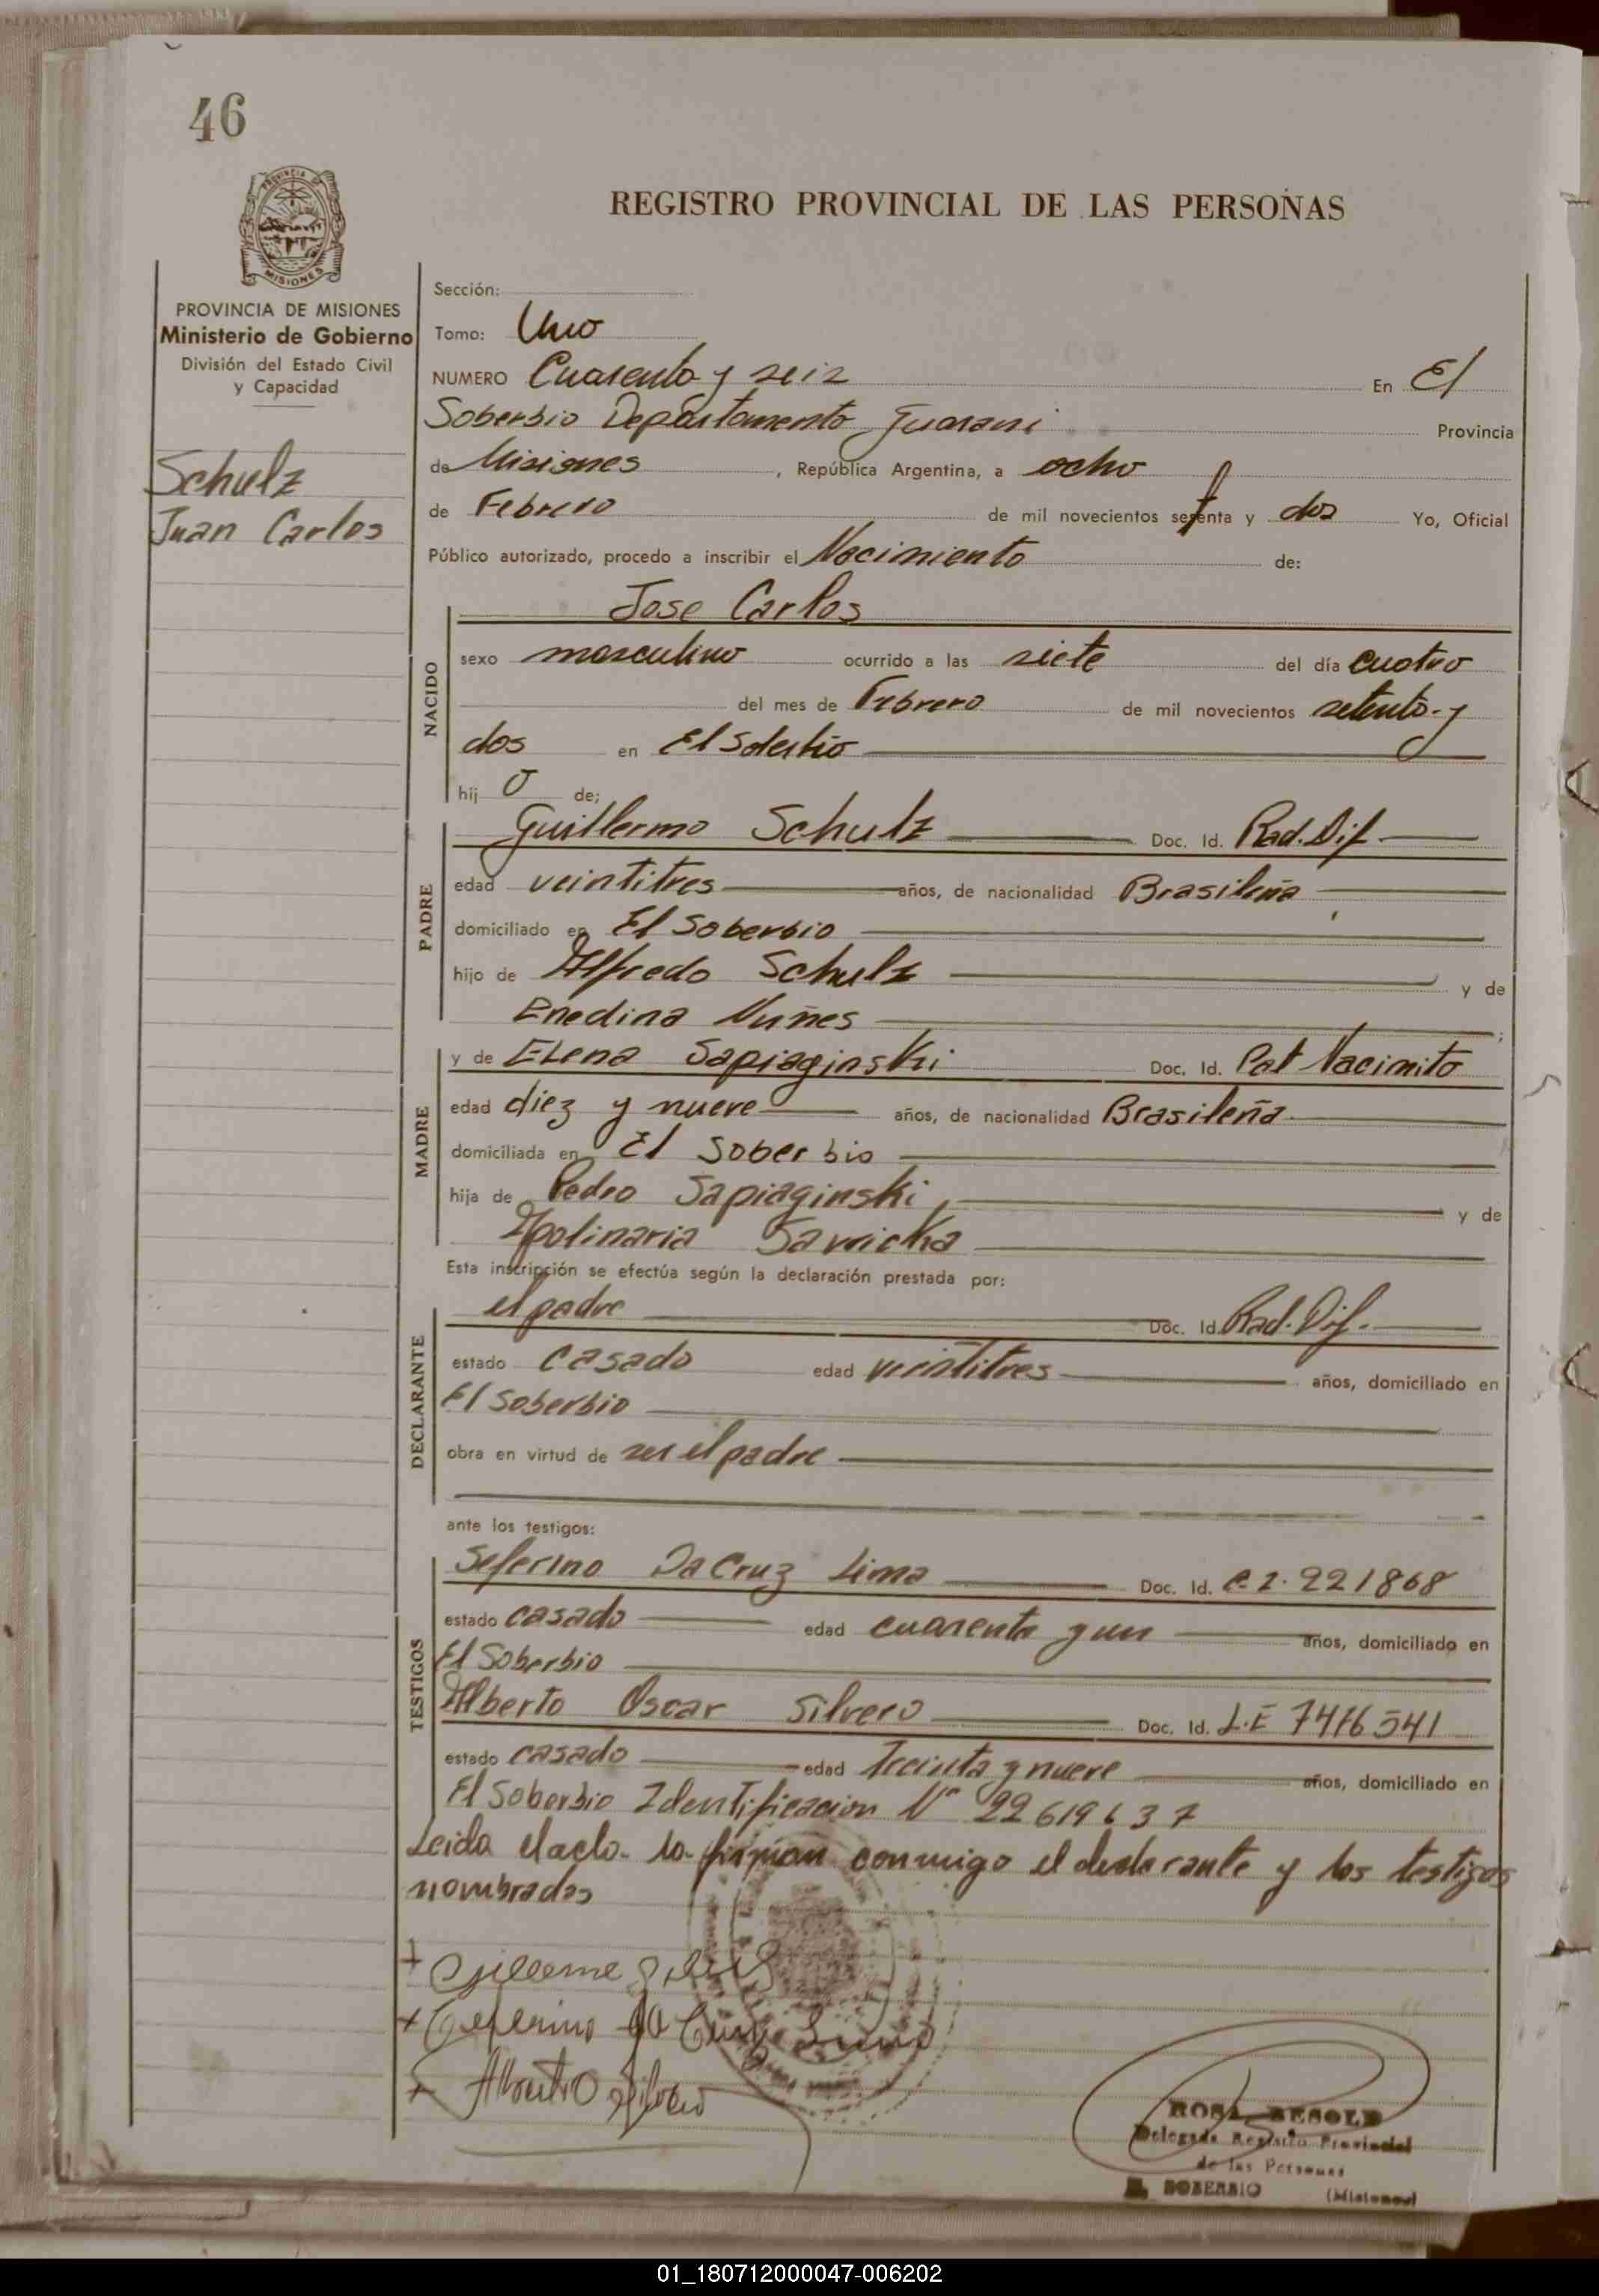 46
PROVINCIA DE
MISIONES
REGISTRO PROVINCIAL DE LAS PERSONAS
PROVINCIA DE MISIONES
Ministerio de Gobierno
División del Estado Civil
y Capacidad
Schulz
Juan Carlos
Sección:
Tomo: Uno
NUMERO Cuarenta y seis En El
Soberbio Departamento Guarani Provincia
de Misiones, República Argentina, a ocho
de Febrero de mil novecientos setenta y dos Yo, Oficial
Público autorizado, procedo a inscribir el Nacimiento de:
NACIDO
Jose Carlos
sexo masculino ocurrido a las siete del día cuatro
del mes de Febrero de mil novecientos setenta y
dos en El Soberbio
hij o de;
PADRE
Guillermo Schulz Doc. Id. Rad. Dif.
edad veintitres años, de nacionalidad Brasileña,
domiciliado en El Soberbio
hijo de Alfredo Schulz y de
Enedina Nuñes;
MADRE
y de Elena Sapiaginski Doc. Id. Pat Nacimito
edad diez y nueve años, de nacionalidad Brasileña
domiciliada en El Soberbio
hija de Pedro Sapiaginski y de
Apolinaria Savricka
Esta inscripción se efectúa según la declaración prestada por:
DECLARANTE
el padre Doc. Id. Rad. Dif.
estado casado edad veintitres años, domiciliado en
El Soberbio
obra en virtud de ser el padre
ante los testigos:
TESTIGOS
Seferino Da Cruz Lima Doc. Id. C.I. 221868
estado casado edad cuarenta y un años, domiciliado en
El Soberbio
Alberto Oscar Silvero Doc. Id. L.E 7416541
estado casado edad Treinta y nueve años, domiciliado en
El Soberbio Identificacion N° 22619637
Leida el acta la firman conmigo el declarante y los testigos
nombrados
+ Gillerme Schulz
+ Ceferino da Cruz Lima
+ Alberto Silvero
ROSA BESOLD
Delegada Registro Provincial
de las Personas
EL SOBERBIO (Misiones)
01_180712000047-006202